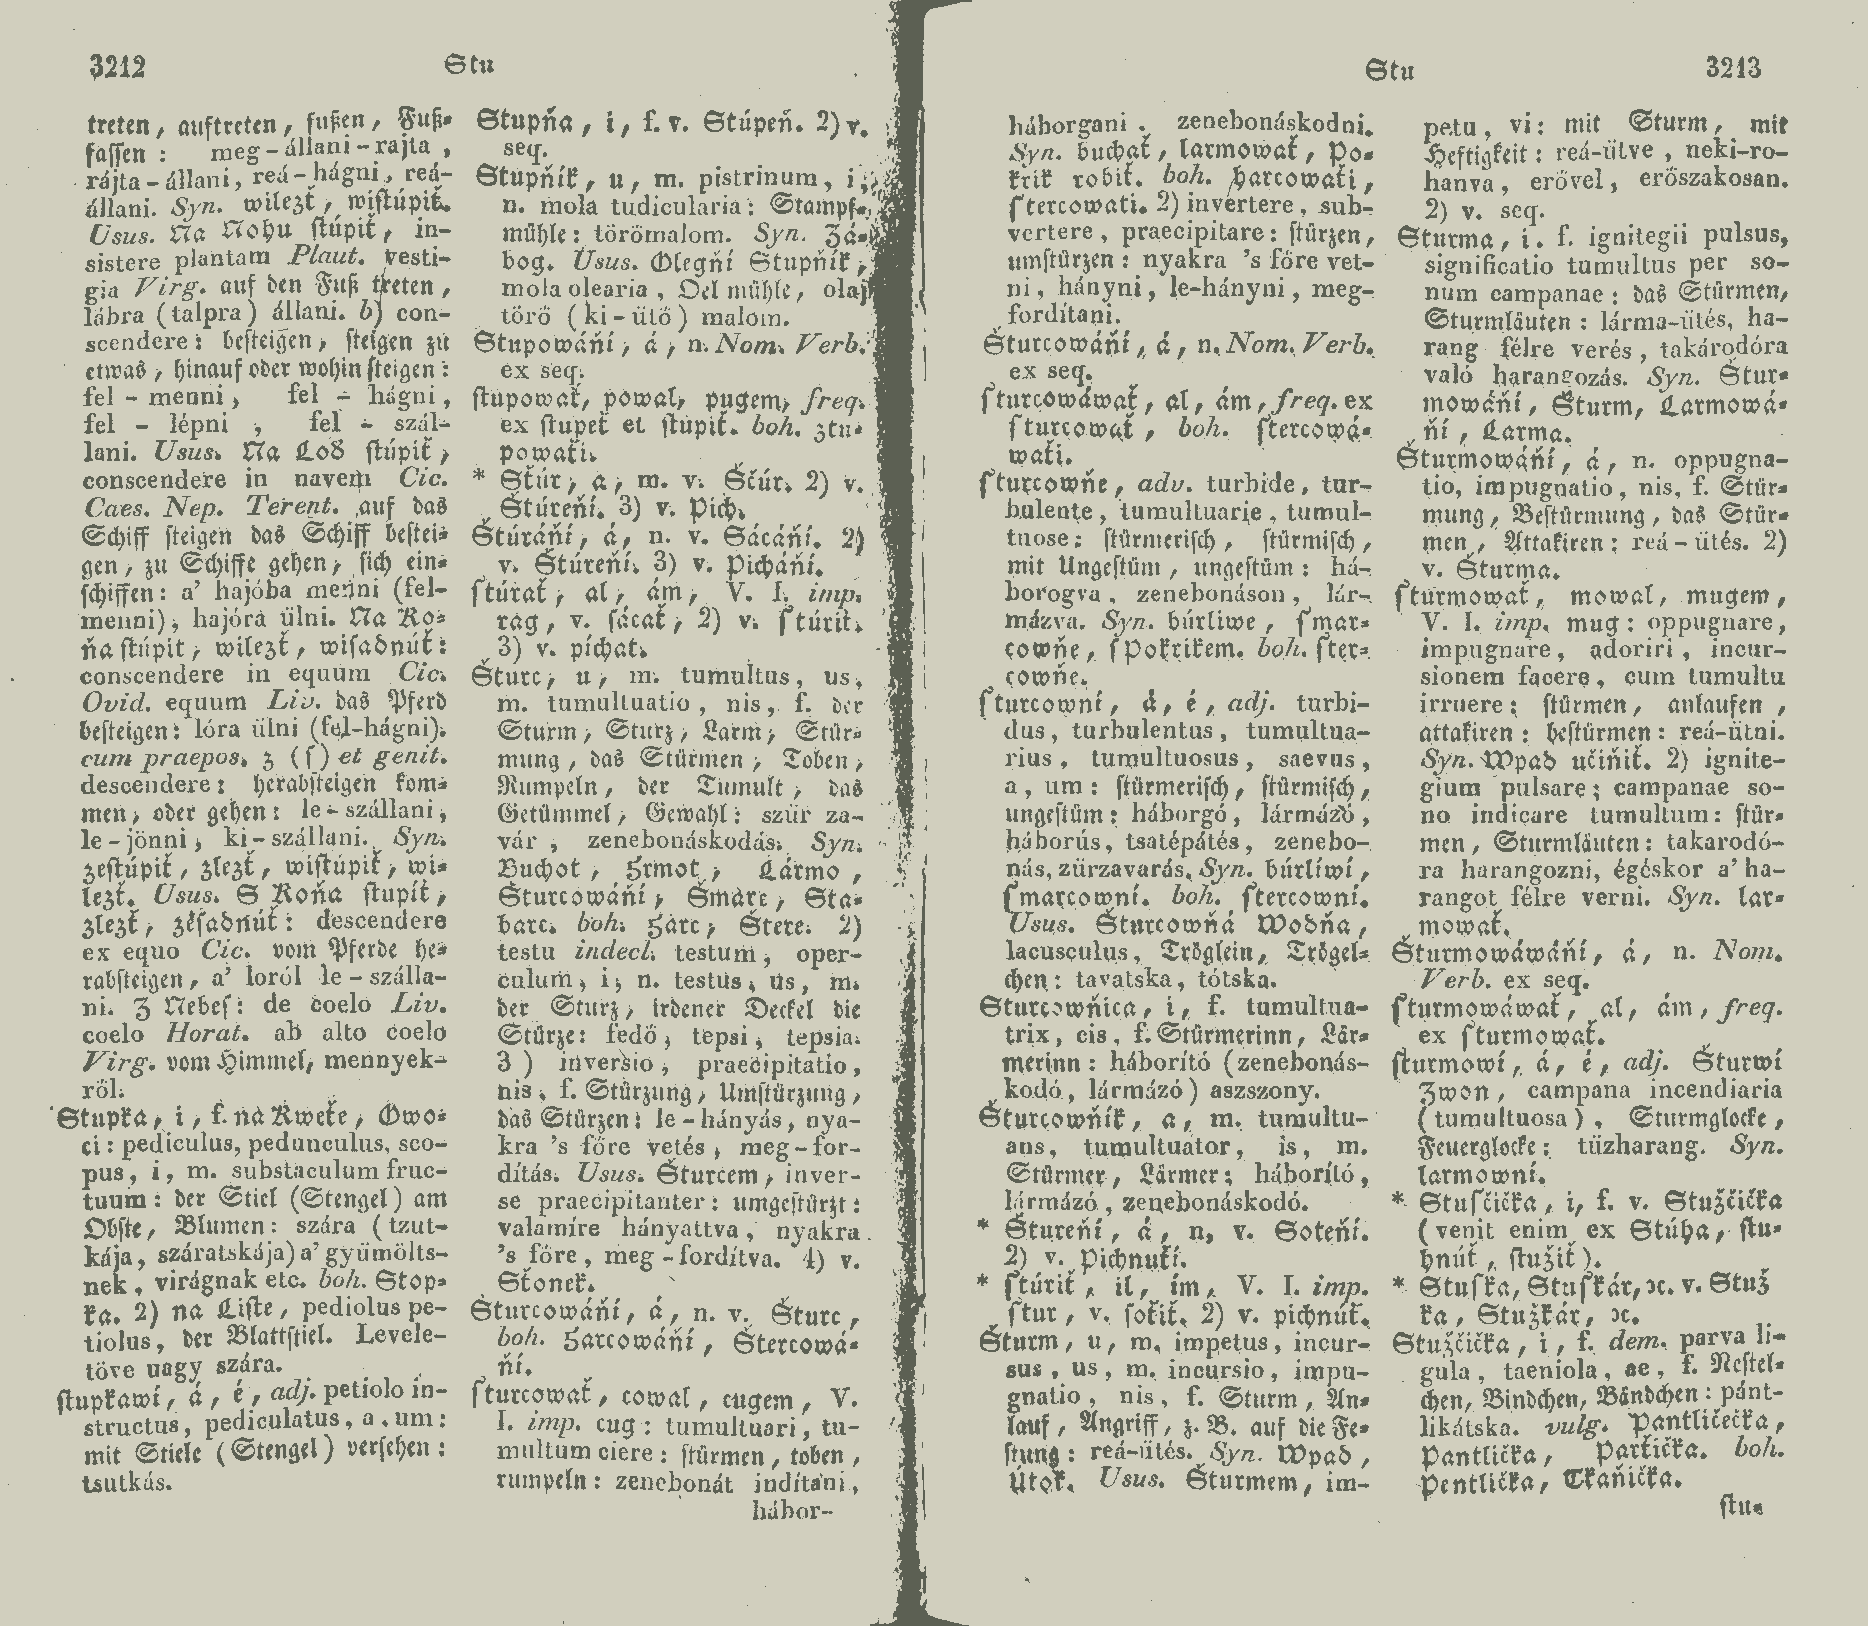 3212
Stu
treten, auftreten, fußen, Fuß-
fassen: meg-állani-rajta,
rájta-állani, reá-hágni, reá-
állani. Syn. wilezť, wistúpiť.
Usus. Na Nohu stúpiť, in-
sistere plantam Plaut. vesti-
gia Virg. auf den Fuß treten,
lábra (talpra) állani. b) con-
scendere: besteigen, steigen zu
etwas, hinauf oder wohin steigen:
fel-menni, fel-hágni,
fel-lépni, fel-szál-
lani. Usus. Na Loď stúpiť,
conscendere in navem Cic.
Caes. Nep. Terent. auf das
Schiff steigen das Schiff bestei-
gen, zu Schiffe gehen, sich ein-
schiffen: a' hajóba menni (fel-
menni), hajóra ülni. Na Ko-
ňa stúpit, wilezť, wisadnúť:
conscendere in equum Cic.
Ovid. equum Liv. das Pferd
besteigen: lóra ülni (fel-hágni).
cum praepos. z (s) et genit.
descendere: herabsteigen kom-
men, oder gehen: le-szállani,
le-jönni, ki-szállani. Syn.
zestúpiť, zlezť, wistúpiť, wi-
lezť. Usus. S Koňa stupiť,
zlezť, zesadnúť: descendere
ex equo Cic. vom Pferde he-
rabsteigen, a' loról le-szálla-
ni. Z Nebes: de coelo Liv.
coelo Horat. ab alto coelo
Virg. vom Himmel, mennyek-
ről.
Stupka, i, f. na Kweťe, Owo-
ci: pediculus, pedunculus, sco-
pus, i, m. substaculum fruc-
tuum: der Stiel (Stengel) am
Obste, Blumen: szára (tzut-
kája, száratskája) a' gyümölts-
nek, virágnak etc. boh. Stop-
ka. 2) na Liste, pediolus pe-
tiolus, der Blattstiel. Levele-
töve uagy szára.
stupkawí, á, é, adj. petiolo in-
structus, pediculatus, a. um:
mit Stiele (Stengel) versehen:
tsutkás.
Stupňa, i, f. v. Stúpeň. 2) v.
seq.
Stupňík, u, m. pistrinum, i,
n. mola tudicularia: Stampf-
mühle: törömalom. Syn. Zá-
bog. Usus. Olegňí Stupňík,
mola olearia, Oelmühle, olaj
törö (ki-ütö) malom.
Stupowáňí, á, n. Nom. Verb.
ex seq.
stupowať, powal, pugem, freq.
ex stupeť et stúpiť. boh. ztu-
powaťi.
* Sťúr, a, m. v. Ščúr. 2) v.
Štúreňí. 3) v. Pich.
Štúráňí, á, n. v. Sácáňí. 2)
v. Štúreňí. 3) v. Picháňí.
štúrať, al, ám, V. I. imp.
rag, v. sácať, 2) v. štúriť.
3) v. píchat.
Šturc, u, m. tumultus, us,
m. tumultuatio, nis, f. der
Sturm, Sturz, Larm, Stür-
mung, das Stürmen, Toben,
Rumpeln, der Tumult, das
Getümmel, Gewahl: szür za-
vár, zenebonáskodás. Syn.
Buchot, Hrmot, Lármo,
Šturcowáňí, Šmarc, Sta-
barc. boh. Harc, Šterc. 2)
testu indecl. testum, oper-
culum, i, n. testus, us, m.
der Sturz, irdener Deckel die
Stürze: fedö, tepsi, tepsia.
3) inversio, praecipitatio,
nis, f. Stürzung, Umstürzung,
das Stürzen: le-hányás, nya-
kra 's főre vetés, meg-for-
dítás. Usus. Šturcem, inver-
se praecipitanter: umgestürzt:
valamire hányattva, nyakra
's főre, meg-fordítva. 4) v.
Stonek.
Šturcowáňí, á, n. v. Šturc,
boh. Harcowáňí, Štercowá-
ňí.
šturcowať, cowal, cugem, V.
I. imp. cug: tumultuari, tu-
multum ciere: stürmen, toben,
rumpeln: zenebonát indítani,
hábor-
Stu
3213
háborgani, zenebonáskodni.
Syn. buchať, larmowať, po-
krik robiť. boh. harcowaťi,
štercowati. 2) invertere, sub-
vertere, praecipitare: stürzen,
umstürzen: nyakra 's főre vet-
ni, hányni, le-hányni, meg-
fordítani.
Šturcowáňí, á, n. Nom. Verb.
ex seq.
šturcowáwať, al, ám, freq. ex
šturcowať, boh. štercowá-
waťi.
šturcowňe, adv. turbide, tur-
bulente, tumultuarie, tumul-
tuose: stürmerisch, stürmisch,
mit Ungestüm, ungestüm: há-
borogva, zenebonáson, lár-
mázva. Syn. búrliwe, šmar-
cowňe, s Pokrikem. boh. šter-
cowňe.
šturcowní, á, é, adj. turbi-
dus, turbulentus, tumultua-
rius, tumultuosus, saevus,
a, um: stürmerisch, stürmisch,
ungestüm: háborgó, lármázó,
háborús, tsatépátés, zenebo-
nás, zürzavarás. Syn. búrlíwí,
šmarcowní. boh. štercowní.
Usus. Šturcowňá Wodňa,
lacusculus, Tröglein, Trögel-
chen: tavatska, tótska.
Sturcowňica, i, f. tumultua-
trix, cis, f. Stürmerinn, Lär-
merinn: háborító (zenebonás-
kodó, lármázó) aszszony.
Šturcowňík, a, m. tumultu-
ans, tumultuator, is, m.
Stürmer, Lärmer: háborító,
lármázó, zenebonáskodó.
* Štureňí, á, n, v. Soteňí.
2) v. Pichnuťí.
* štúriť, il, ím, V. I. imp.
štur, v. sotiť. 2) v. pichnúť.
Šturm, u, m. impetus, incur-
sus, us, m. incursio, impu-
gnatio, nis, f. Sturm, An-
lauf, Angriff, z. B. auf die Fe-
stung: reá-ütés. Syn. Wpad,
Útok. Usus. Šturmem, im-
petu, vi: mit Sturm, mit
Heftigkeit: reá-ütve, neki-ro-
hanva, erővel, erőszakosan.
2) v. seq.
Šturma, i. f. ignitegii pulsus,
significatio tumultus per so-
num campanae: das Stürmen,
Sturmläuten: lárma-ütés, ha-
rang félre verés, takárodóra
való harangozás. Syn. Štur-
mowáňí, Šturm, Larmowá-
ňí, Larma.
Šturmowáňí, á, n. oppugna-
tio, impugnatio, nis, f. Stür-
mung, Bestürmung, das Stür-
men, Attakiren: reá-ütés. 2)
v. Šturma.
šturmowať, mowal, mugem,
V. I. imp. mug: oppugnare,
impugnare, adoriri, incur-
sionem facere, cum tumultu
irruere: stürmen, anlaufen,
attakiren: bestürmen: reá-ütni.
Syn. Wpad učiňiť. 2) ignite-
gium pulsare; campanae so-
no indicare tumultum: stür-
men, Sturmläuten: takarodó-
ra harangozni, égéskor a' ha-
rangot félre verni. Syn. lar-
mowať.
Šturmowáwáňí, á, n. Nom.
Verb. ex seq.
šturmowáwať, al, ám, freq.
ex šturmowať.
šturmowí, á, é, adj. Šturwí
Zwon, campana incendiaria
(tumultuosa), Sturmglocke,
Feuerglocke: tüzharang. Syn.
larmowní.
* Stusčička, i, f. v. Stužčička
(venit enim ex Stúha, stu-
hnúť, stužiť).
* Stuska, Stuskár, ɔc. v. Stuž
ka, Stužkár, ɔc.
Stužčička, i, f. dem. parva li-
gula, taeniola, ae, f. Nestel-
chen, Bindchen, Bändchen: pánt-
likátska. vulg. Pantličečka,
Pantlička, Parťička. boh.
Pentlička, Tkaňička.
stu-